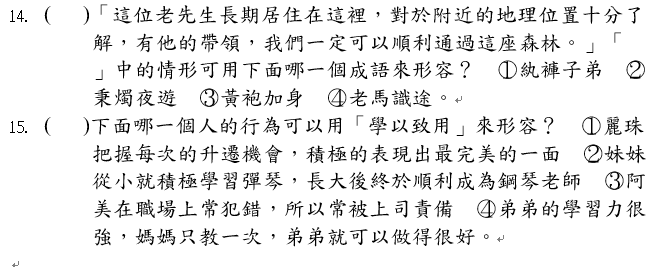 14. (　　)「這位老先生長期居住在這裡，對於附近的地理位置十分了
解，有他的帶領，我們一定可以順利通過這座森林。」「
」中的情形可用下面哪一個成語來形容？　①紈褲子弟　②
秉燭夜遊　③黃袍加身　④老馬識途。
15. (　　)下面哪一個人的行為可以用「學以致用」來形容？　①麗珠
把握每次的升遷機會，積極的表現出最完美的一面　②妹妹
從小就積極學習彈琴，長大後終於順利成為鋼琴老師　③阿
美在職場上常犯錯，所以常被上司責備　④弟弟的學習力很
強，媽媽只教一次，弟弟就可以做得很好。